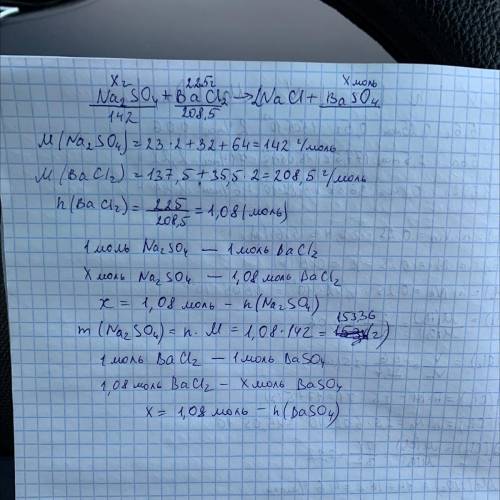 x г 225г x моль
Na₂SO₄ + BaCl₂ → 2NaCl + BaSO₄
142 208,5
M(Na₂SO₄) = 23·2+32+64=142 г/моль
M(BaCl₂) = 137,5+35,5·2=208,5 г/моль
n(BaCl₂) = 225/208,5 = 1,08(моль)
1 моль Na₂SO₄ — 1 моль BaCl₂
x моль Na₂SO₄ — 1,08 моль BaCl₂
x = 1,08 моль - n(Na₂SO₄)
153,36
m(Na₂SO₄) = n·M = 1,08·142 = (г)
1 моль BaCl₂ — 1 моль BaSO₄
1,08 моль BaCl₂ - x моль BaSO₄
x = 1,08 моль - n(BaSO₄)